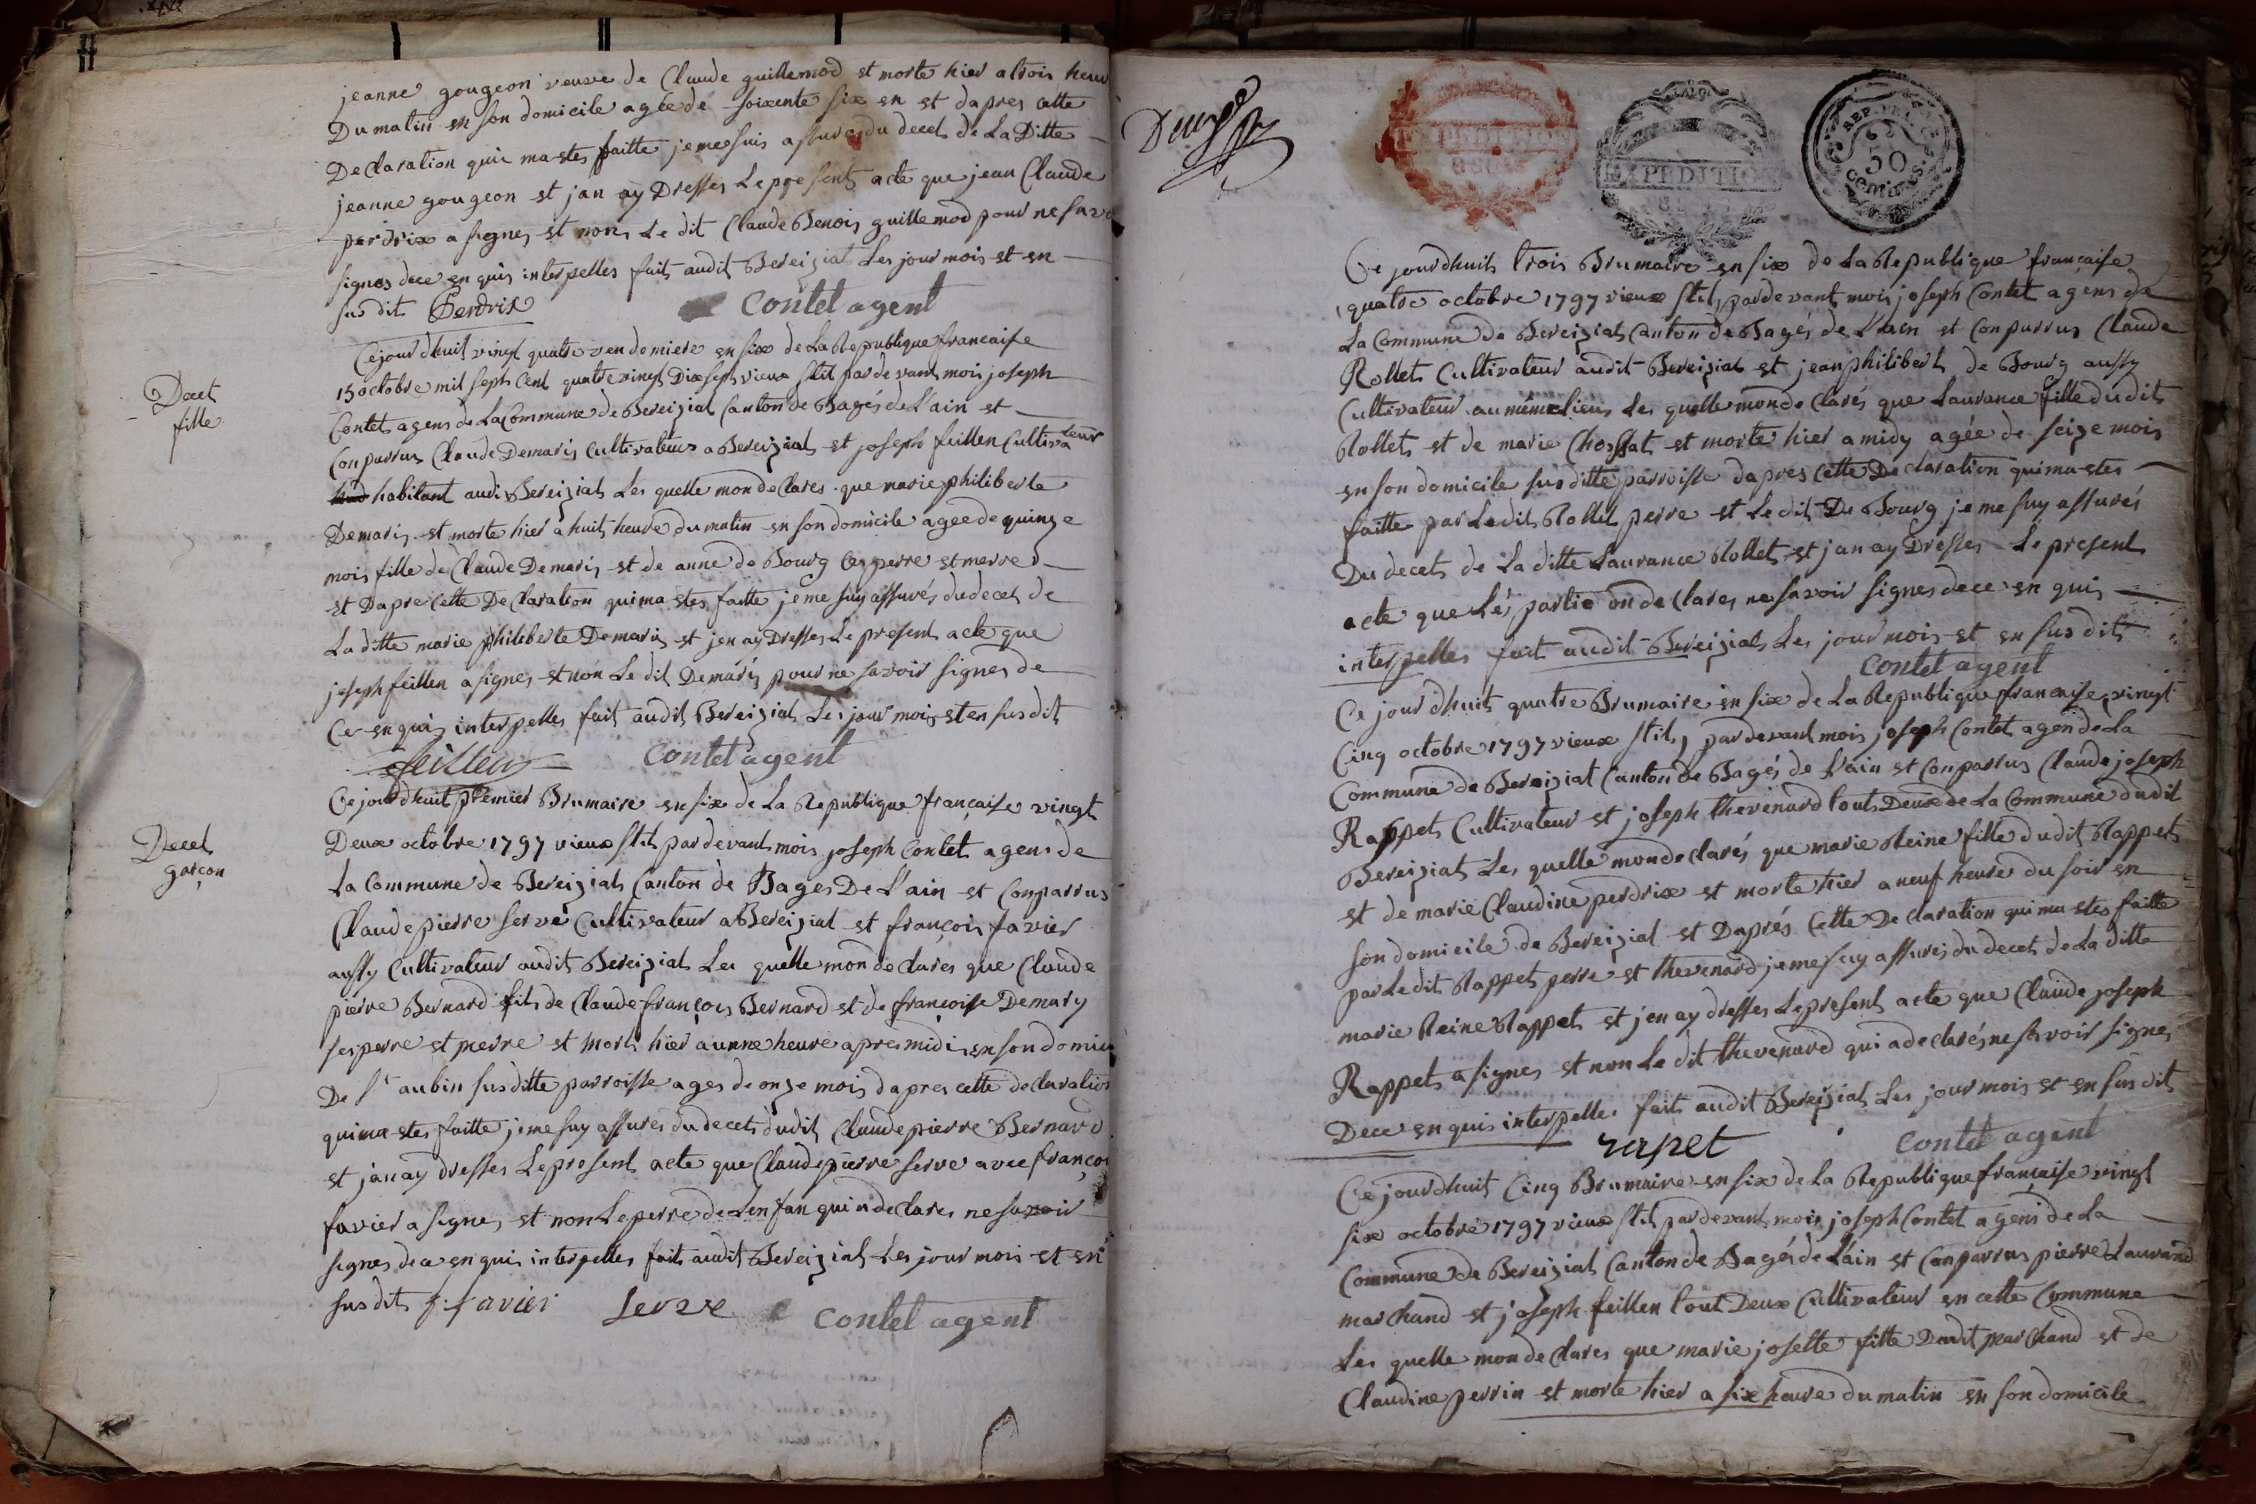 jeanne gougeon veuve de Claude guillemod et morte hier a trois heur
Du matin en son domicile agée de soixente six en et dapres cette
Declaration qui ma etes faitte je me suis assures du decet de La Ditte
jeanne gougeon et jan ay Dresses Le present acte que jean Claude
perdrix a signes et non Le dit Claude Benois guillemod pour ne savo
signes dece en quis interpelles fait audit Bereiziat Les jour mois et en
sus dit Perdrix Contet agent
Decet
fille
Ce jour dhuit vingt quatre vendemiere en six de La Republique francaise
15 octobre mil sept Cent quatre vingt Dix sept vieux stil par devant mois joseph
Contet agens de La Commune de Bereiziat Canton de Bagés de L'ain et
Conparrus Claude Demaris Cultivateur a Bereiziat et joseph feillen Cultivateur
habitant audi Bereiziat Les quelle mon declares que marie philiberte
Demaris et morte hier a huit heure du matin en son domicile agée de quinze
mois fille de Claude Demaris et de anne de Bourg ces perre et merre
et Dapre Cette Declaration qui ma etes faitte je me suy assurés du decet de
La ditte marie philiberte Demaris et jen ay Dresses Le present acte que
joseph feillen a signes et non Le dit Demaris pour ne savoir signes de
Ce en quis interpelles fait audit Bereiziat Les jour mois et en sus dit
feillen Contet agent
Decet
garçon
Ce jour dhuit premier Brumaire en six de La Republique française vingt
Deux octobre 1797 vieux stil par devant mois joseph Contet agens de
La Commune de Bereiziat Canton de Bages De L'ain et Conparrus
Claude pierre Serve Cultivateur a Bereiziat et françois favier
aussy Cultivateur audit Bereiziat Les quelle mon declares que Claude
pierre Bernard fils de Claude françois Bernard et de françoise Demary
ses perre et merre et mort hier a unne heure apres midi en son domici
De St aubin sus ditte parroisse ages de onze mois dapres cette declaration
qui ma etes faitte je me suy assures du decet dudit Claude pierre Bernard
et jan ay dresses Le present acte que Claude pierre Serve avec françoi
favier a signes et non Le perre de Lenfan qui a declares ne savoir
signes dece en quis interpelles fait audit Bereiziat Les jour mois et en
sus dit f. favier serve Contet agent
EXPEDITION
REP. FRA
50
Centimes
Ce jour dhuit trois Brumaire en six de La Republique française
quatre octobre 1797 vieux stil par devant mois joseph Contet agens de
La Commune de Bereiziat Canton de Bagés de L'ain et Conparrus Claude
Rollet Cultivateur audit Bereiziat et jean philibert de Bourg aussy
Cultivateur au même Lieu Les quelle mon declarés que Laurance fille dudit
Rollet et de marie Chossat et morte hier a midy agée de seize mois
en son domicile sus ditte parroisse dapres Cette Declaration qui ma etes
faitte par Le dit Rollet perre et Le dit De Bourg je me suy assurés
Du decet de La ditte Laurance Rollet et jan ay Dresses Le present
acte que Lés partie on declares ne savoir signes dece en quis
interpelles fait audit Bereiziat Les jour mois et en sus dit
Contet agent
Ce jour dhuit quatre Brumaire en six de La Republique francaise vingt
Cinq octobre 1797 vieux stil par devant mois joseph Contet agen de La
Commune de Bereiziat Canton de Bagés de L'ain et Conparrus Claude joseph
Rappet Cultivateur et joseph thevenard tout Deux de La Commune dudit
Bereiziat Les quelle mon declarés que marie Reine fille dudit Rappet
et de marie Claudine perdrix et morte hier a neuf heure du soir en
son domicile de Bereiziat et Daprés Cette Declaration qui ma etes faitte
par Le dit Rappet perre et thevenard je me suy assurés du decet de La ditte
marie Reine Rappet et jen ay dresses Le present acte que Claude joseph
Rappet a signes et non Le dit thevenard qui a declarés ne savoir signes
Dece en quis interpelles fait audit Bereiziat Les jour mois et en sus dit
rapet Contet agent
Ce jour dhuit Cinq Brumaire en six de La Republique francaise vingt
six octobre 1797 vieux stil par devant mois joseph Contet agens de La
Commune de Bereiziat Canton de Bagé de L'ain et Conparrus pierre Laurand
marchand et joseph feillen tout Deux Cultivateur en cette Commune
Les quelle mon declares que marie josette fille Dudit marchand et de
Claudine perrin et morte hier a six heure du matin en son domicile